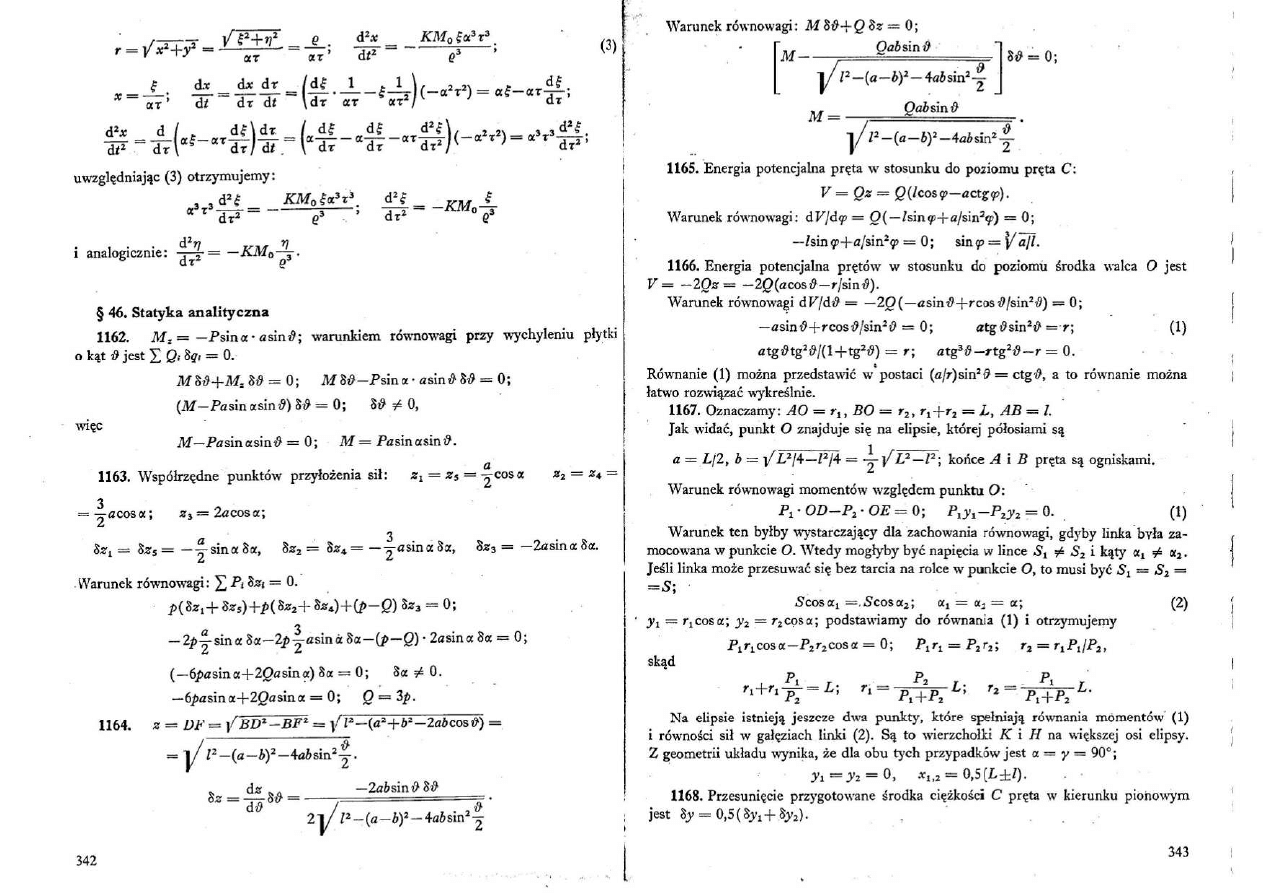 r = √(x²+y²) = √(ξ²+η²)/(ατ) = ϱ/(ατ); d²x/dt² = −KM₀ξα³τ³/ϱ³; (3)
x = ξ/(ατ); dx/dt = dx/dτ dτ/dt = (dξ/dτ · 1/(ατ) − ξ 1/(ατ²))(−α²τ²) = αξ−ατ dξ/dτ;
d²x/dt² = d/dτ (αξ−ατ dξ/dτ) dτ/dt = (α dξ/dτ − α dξ/dτ − ατ d²ξ/dτ²)(−α²τ²) = α³τ³ d²ξ/dτ²;
uwzględniając (3) otrzymujemy:
α³τ³ d²ξ/dτ² = − KM₀ξα³τ³/ϱ³; d²ξ/dτ² = −KM₀ ξ/ϱ³
i analogicznie: d²η/dτ² = −KM₀ η/ϱ³.
§ 46. Statyka analityczna
1162. M_z = −Psin α · asin ϑ; warunkiem równowagi przy wychyleniu płytki
o kąt ϑ jest ∑ Qᵢ δqᵢ = 0.
M δϑ+M_z δϑ = 0; M δϑ−Psin α · asin ϑ δϑ = 0;
(M−Pasin αsin ϑ) δϑ = 0; δϑ ≠ 0,
więc
M−Pasin αsin ϑ = 0; M = Pasin αsin ϑ.
1163. Współrzędne punktów przyłożenia sił: z₁ = z₅ = a/2 cos α z₂ = z₄ =
= 3/2 acos α; z₃ = 2acos α;
δz₁ = δz₅ = − a/2 sin α δα, δz₂ = δz₄ = − 3/2 asin α δα, δz₃ = −2asin α δα.
Warunek równowagi: ∑ Pᵢ δzᵢ = 0.
p(δz₁+δz₅)+p(δz₂+δz₄)+(p−Q) δz₃ = 0;
−2p a/2 sin α δα−2p 3/2 asin α δα−(p−Q) · 2asin α δα = 0;
(−6pasin α+2Qasin α) δα = 0; δα ≠ 0.
−6pasin α+2Qasin α = 0; Q = 3p.
1164. z = DF = √(BD²−BF²) = √(l²−(a²+b²−2abcos ϑ)) =
= √(l²−(a−b)²−4absin² ϑ/2).
δz = dz/dϑ δϑ = −2absin ϑ δϑ / (2√(l²−(a−b)²−4absin² ϑ/2)).
342
Warunek równowagi: M δϑ+Q δz = 0;
[M− Qabsin ϑ / √(l²−(a−b)²−4absin² ϑ/2)] δϑ = 0;
M = Qabsin ϑ / √(l²−(a−b)²−4absin² ϑ/2).
1165. Energia potencjalna pręta w stosunku do poziomu pręta C:
V = Qz = Q(lcos φ−actg φ).
Warunek równowagi: dV/dφ = Q(−lsin φ+a/sin²φ) = 0;
−lsin φ+a/sin²φ = 0; sin φ = ∛(a/l).
1166. Energia potencjalna prętów w stosunku do poziomu środka walca O jest
V = −2Qz = −2Q(acos ϑ−r/sin ϑ).
Warunek równowagi dV/dϑ = −2Q(−asin ϑ+rcos ϑ/sin²ϑ) = 0;
−asin ϑ+rcos ϑ/sin²ϑ = 0; atg ϑsin²ϑ = r; (1)
atgϑtg²ϑ/(1+tg²ϑ) = r; atg³ϑ−rtg²ϑ−r = 0.
Równanie (1) można przedstawić w postaci (a/r)sin²ϑ = ctgϑ, a to równanie można
łatwo rozwiązać wykreślnie.
1167. Oznaczamy: AO = r₁, BO = r₂, r₁+r₂ = L, AB = l.
Jak widać, punkt O znajduje się na elipsie, której półosiami są
a = L/2, b = √(L²/4−l²/4) = 1/2 √(L²−l²); końce A i B pręta są ogniskami.
Warunek równowagi momentów względem punktu O:
P₁ · OD−P₂ · OE = 0; P₁y₁−P₂y₂ = 0. (1)
Warunek ten byłby wystarczający dla zachowania równowagi, gdyby linka była za-
mocowana w punkcie O. Wtedy mogłyby być napięcia w lince S₁ ≠ S₂ i kąty α₁ ≠ α₂.
Jeśli linka może przesuwać się bez tarcia na rolce w punkcie O, to musi być S₁ = S₂ =
=S;
Scos α₁ = Scos α₂; α₁ = α₂ = α; (2)
y₁ = r₁cos α; y₂ = r₂cos α; podstawiamy do równania (1) i otrzymujemy
P₁r₁cos α−P₂r₂cos α = 0; P₁r₁ = P₂r₂; r₂ = r₁P₁/P₂,
skąd
r₁+r₁ P₁/P₂ = L; r₁ = P₂/(P₁+P₂) L; r₂ = P₁/(P₁+P₂) L.
Na elipsie istnieją jeszcze dwa punkty, które spełniają równania momentów (1)
i równości sił w gałęziach linki (2). Są to wierzchołki K i H na większej osi elipsy.
Z geometrii układu wynika, że dla obu tych przypadków jest α = γ = 90°;
y₁ = y₂ = 0, x₁,₂ = 0,5(L±l).
1168. Przesunięcie przygotowane środka ciężkości C pręta w kierunku pionowym
jest δy = 0,5(δy₁+δy₂).
343